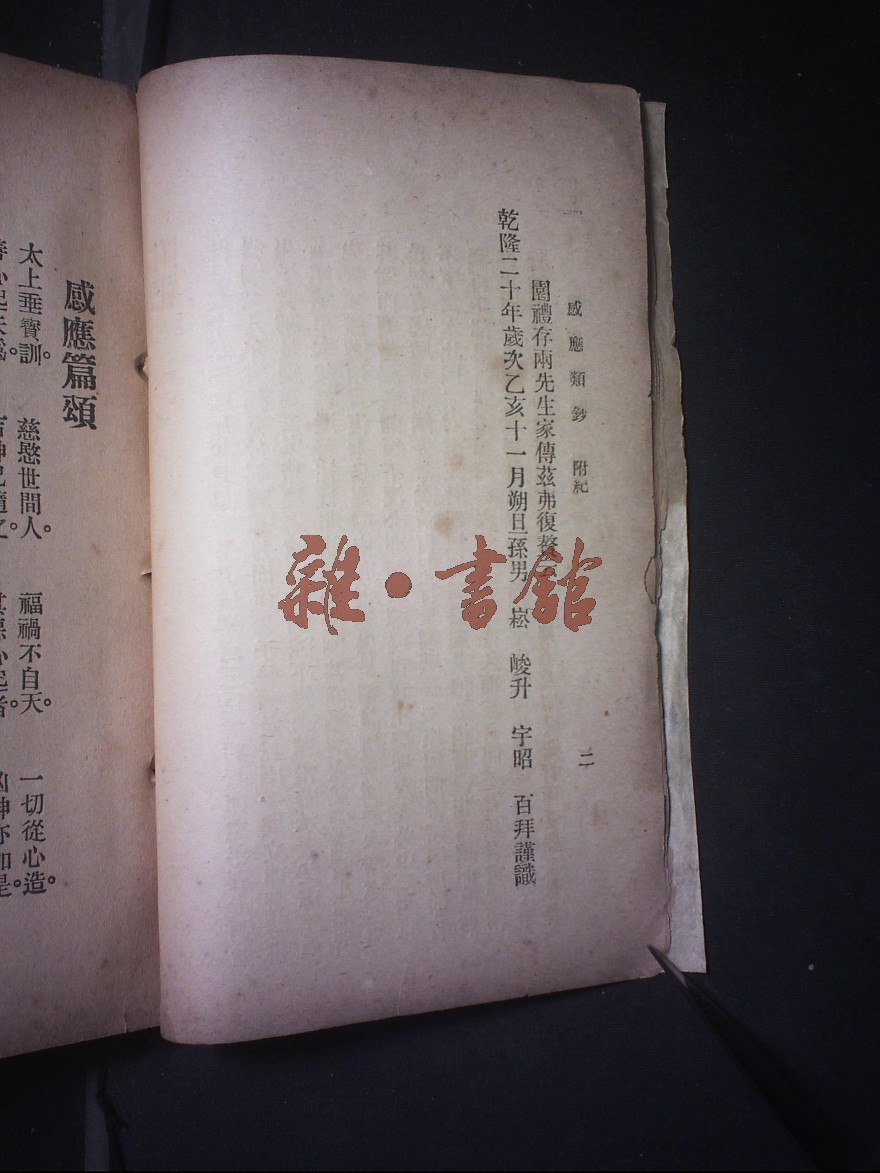 感應類鈔 附紀 二
園禮存兩先生家傳茲弗復贅
乾隆二十年歲次乙亥十一月朔日孫男 崧 峻升 宇昭 百拜謹識
雜·書館
感應篇頌
太上垂寶訓。 慈愍世間人。 福禍不自天。 一切從心造。